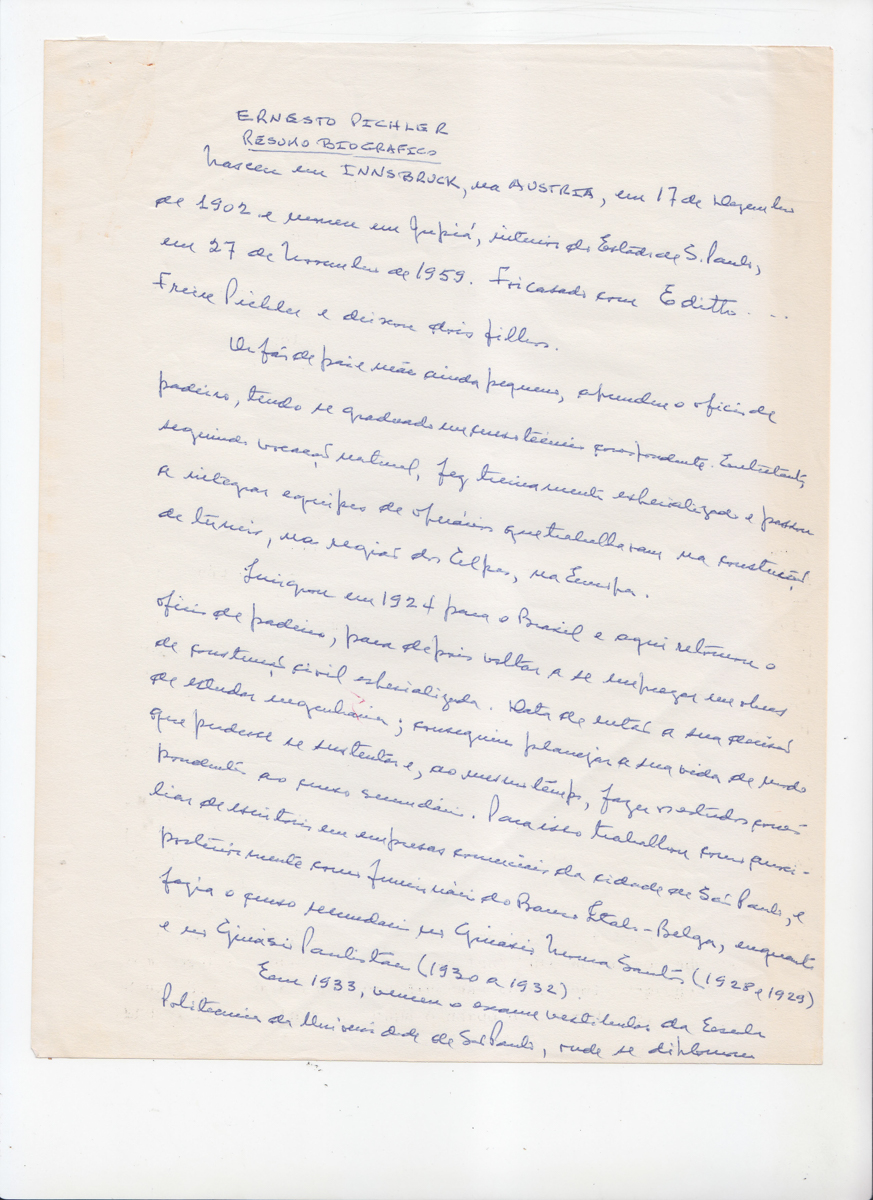 ERNESTO PICHLER
RESUMO BIOGRAFICO
Nasceu em INNSBRUCK, na AUSTRIA, em 17 de Dezembro
de 1902 e morreu em Jupiá, interior do Estado de S. Paulo,
em 27 de Novembro de 1959. Foi casado com Editto . . .
Freire Pichler e deixou dois filhos.
Orfão de pai e mãe ainda pequeno, aprendeu o oficio de
padeiro, tendo se graduado em curso técnico correspondente. Entretanto,
seguindo vocação natural, fez treinamento especializado e passou
a integrar equipes de operários que trabalharam na construção
de túneis, na região dos Alpes, na Europa.
Emigrou em 1924 para o Brasil e aqui retomou o
oficio de padeiro, para depois voltar a se empregar em obras
de construção civil especializada. Data de então a sua decisão
de estudar engenharia; conseguiu planejar a sua vida de modo
que pudesse se sustentar e, ao mesmo tempo, fazer os estudos corres
pondentes ao curso secundário. Para isso trabalhou como auxi-
liar de escritorio em empresas comerciais da cidade de São Paulo, e
posteriormente como funcionário do Banco Italo-Belga, enquanto
fazia o curso secundario no Ginásio Norma Santos (1928 e 1929)
e no Ginásio Paulistano (1930 a 1932).
Em 1933, venceu o exame vestibular da Escola
Politecnica da Universidade de São Paulo, onde se diplomou